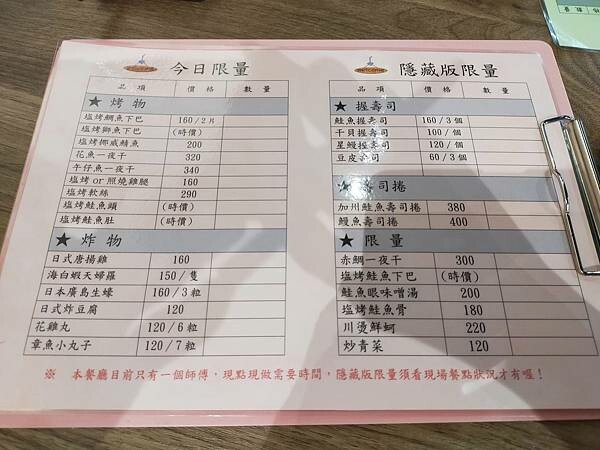 今日限量
品項 價格 數量
★ 烤物
塩烤鯛魚下巴 160/2片
塩烤獅魚下巴 (時價)
塩烤挪威鯖魚 200
花魚一夜干 320
午仔魚一夜干 340
塩烤 or 照燒雞腿 160
塩烤軟絲 290
塩烤鮭魚頭 (時價)
塩烤鮭魚肚 (時價)
★ 炸物
日式唐揚雞 160
海白蝦天婦羅 150/隻
日本廣島生蠔 160/3粒
日式炸豆腐 120
花雞丸 120/6粒
章魚小丸子 120/7粒
隱藏版限量
品項 價格 數量
★ 握壽司
鮭魚握壽司 160/3個
干貝握壽司 100/個
星鰻握壽司 120/個
豆皮壽司 60/3個
★ 壽司捲
加州鮭魚壽司捲 380
鰻魚壽司捲 400
★ 限量
赤鯛一夜干 300
塩烤鮭魚下巴 (時價)
鮭魚眼味噌湯 200
塩烤鮭魚骨 180
川燙鮮蚵 220
炒青菜 120
※ 本餐廳目前只有一個師傅，現點現做需要時間，隱藏版限量須看現場餐點狀況才有喔！